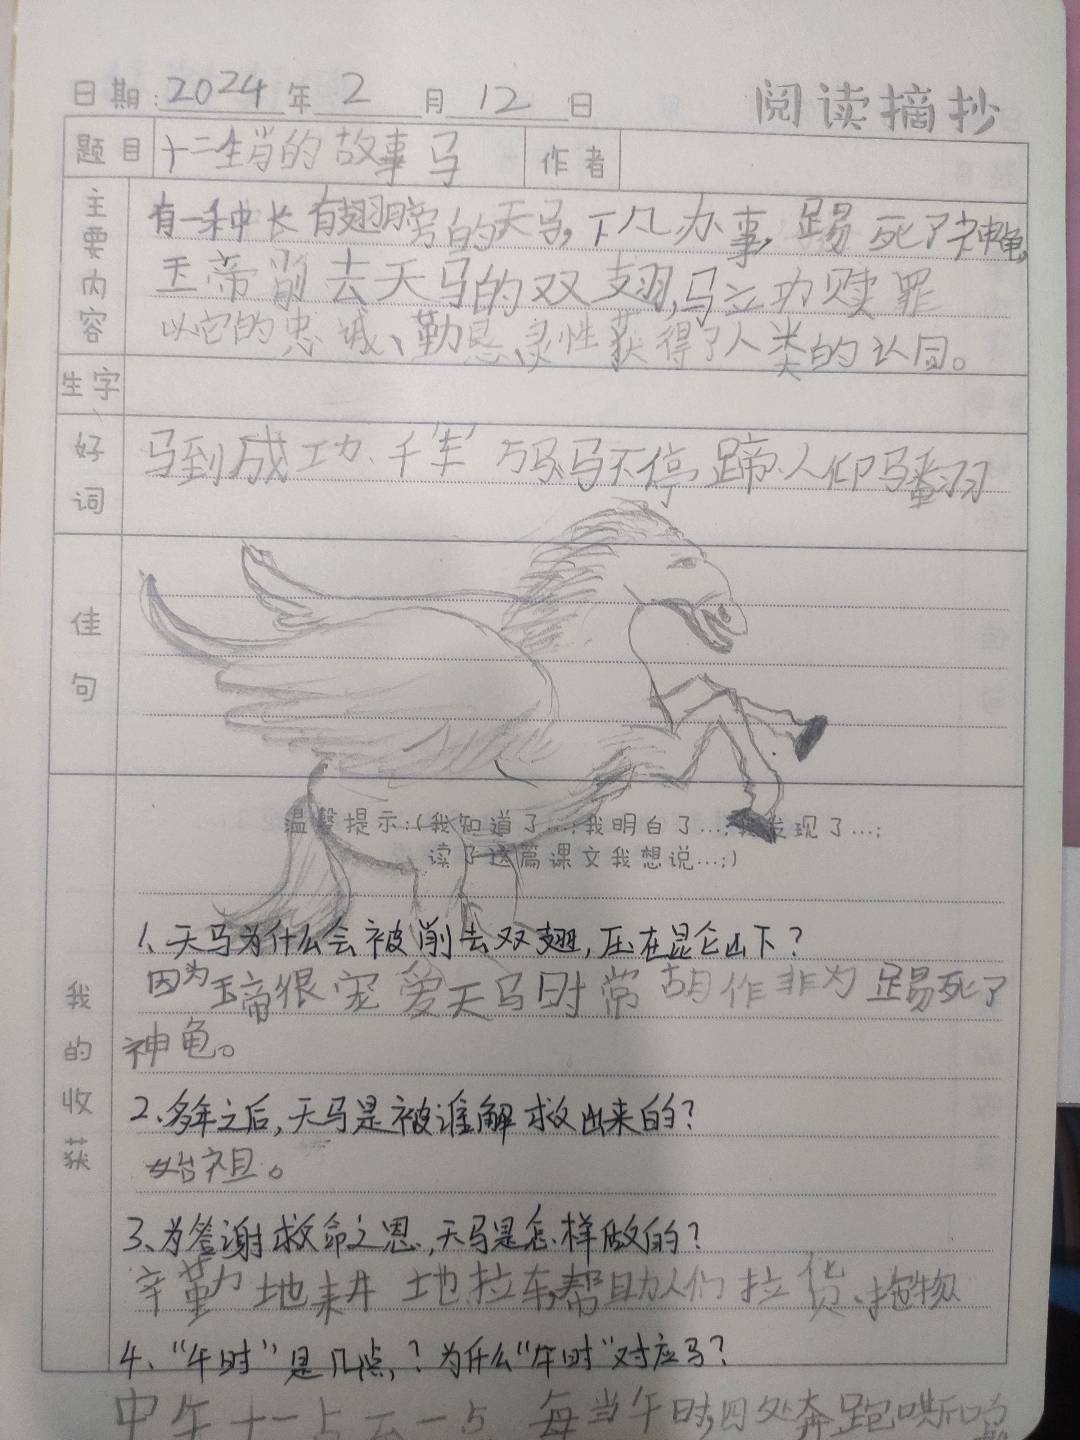 日期:2024年2月12日 阅读摘抄
题目 十二生肖的故事马 作者
主要内容
有一种长有翅膀的天马,下凡办事,踢死了神龟,
玉帝削去天马的双翅,马立功赎罪
以它的忠诚、勤恳、灵性获得了人类的认同。
生字
好词
马到成功、千军万马、马不停蹄、人仰马翻
佳句
温馨提示:(我知道了…;我明白了…;我发现了…;
读了这篇课文我想说…;)
我的收获
1、天马为什么会被削去双翅,压在昆仑山下?
因为玉帝很宠爱天马时常胡作非为踢死了
神龟。
2、多年之后,天马是被谁解救出来的?
始祖。
3、为答谢救命之恩,天马是怎样做的?
辛勤地耕地拉车,帮助人们拉货、拖物
4、“午时”是几点,?为什么“午时”对应马?
中午十一点至一点 每当午时,四处奔跑嘶鸣